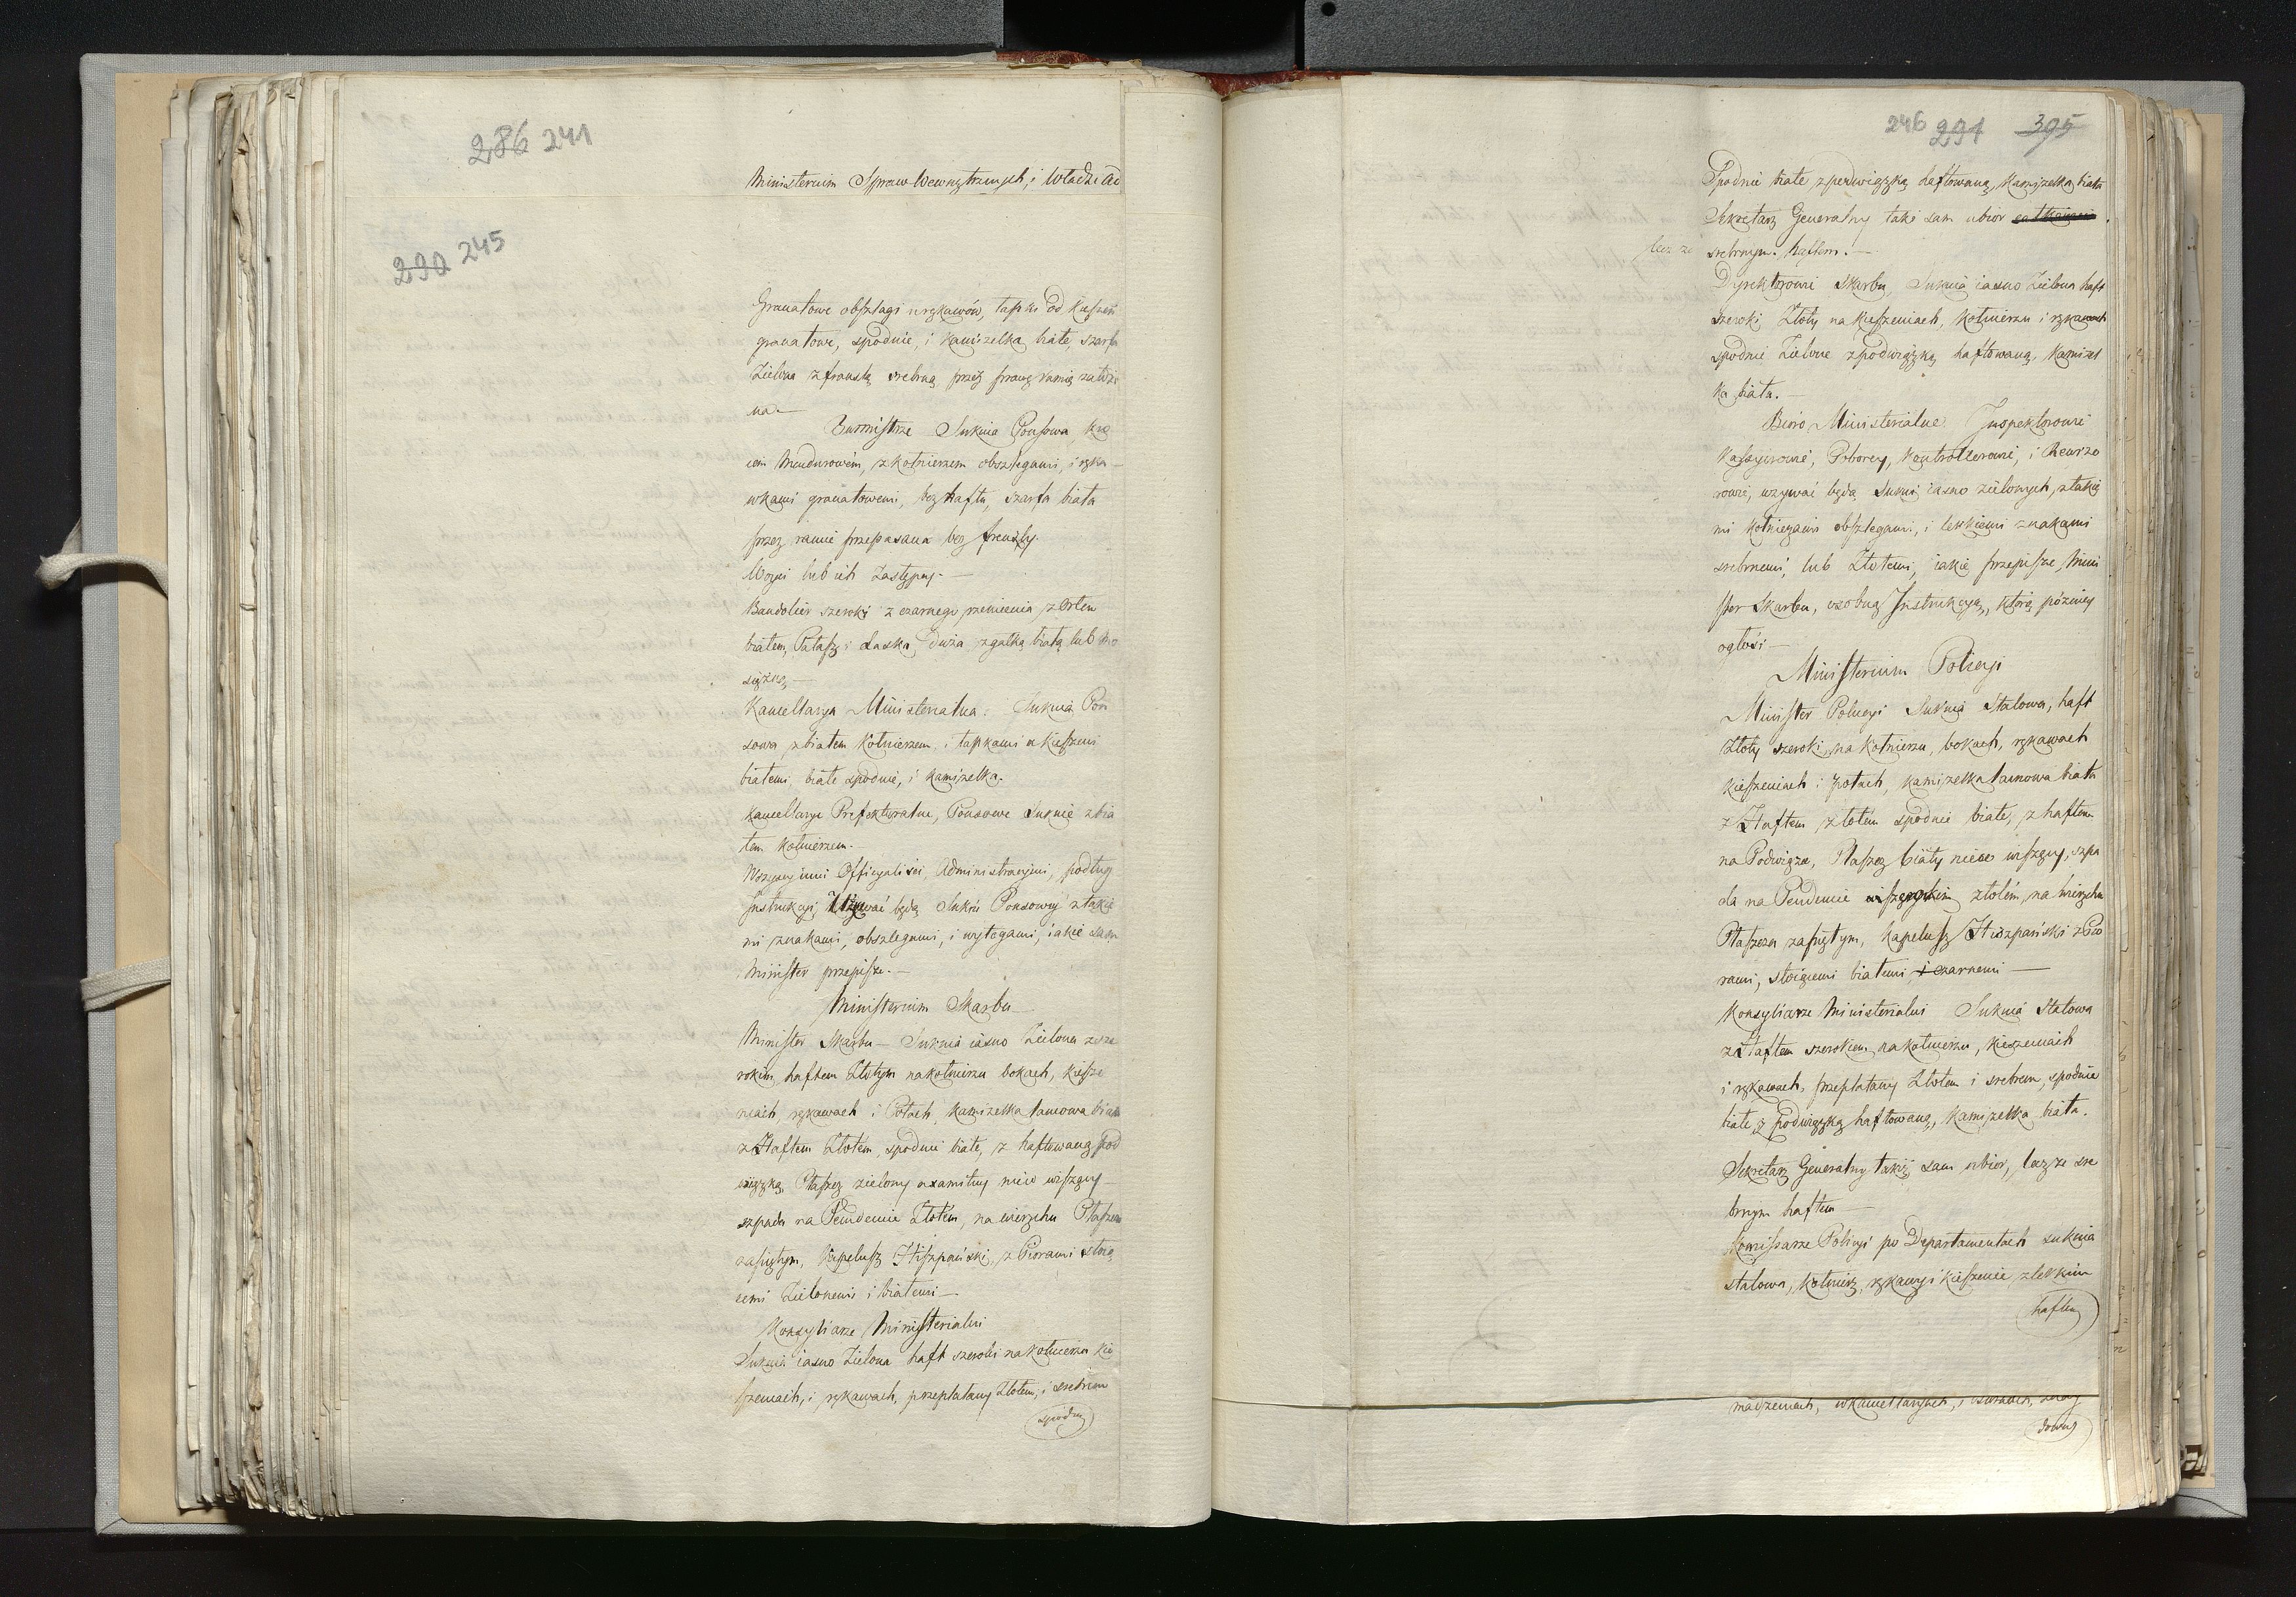 286 241
Ministerium Spraw Wewnętrznych, i Władz Ad
290 245
Granatowe obszlagi u rękawów, łapki od kieszeń
granatowe, spodnie, i kamizelka białe, szarfa
Zielona z franzlą srebrną przez prawę ramię zawie
na.—
Burmistrze Suknia Ponsowa, kro
iem Mundurowém, z kołnierzem obszlegami, i ręka-
wkami granatowemi, bez haftu, szarfa biała
przez ramie przepasana bez frenzly.
Woyci lub ich Zastępcy.—
Bandolier szeroki z czarnego rzemienia, z Orłem
białem, Pałasz i Laska duża z gałką białą lub mo
siężną—
Kancellarya Ministerialna: Suknia Pon
sowa z białem kołnierzem, i łapkami u kieszeni
białemi, białe spodnie, i kamizelka.
Kancellarye Prefekturalne, Ponsowe Suknie z bia
łem kołnierzem.
Wszyscy inni Officyaliści, Administracyini, podług
Instrukcyi, Używać będą Sukni Ponsowey z takie
mi znakami, obszlegami, i wyłogami, iakie sam
Minister przepisze.—
Ministerium Skarbu
Minister Skarbu— Suknia iasno Zielona z sze
rokim haftem Złotym na kołnierzu bokach, kiesze
niach, rękawach i Połach, kamizelka lamowa biała
z Haftem Złotém, spodnie białe, z haftowaną pod
wiązką, Płaszcz zielony axamitny nieco wiszący—
szpada na Pendencie Złotém, na wierzchu Płaszcza
zapiętym, Kapelusz Hiszpański, z Piorami stoią
cemi Zielonemi i białemi—
Konsyliarze Ministerialni
Suknia iasno Zielona haft szeroki na kołnierzu kie
szeniach, i rękawach, przeplatany Złotem, i srebrem
spodnie
246 291 395
Spodnie białe, z podwiązką haftowaną, Kamizelka biała
Sekretarz Generalny taki sam ubior
lecz ze srebrnym haftem.—
Dyrektorowie Skarbu, Suknia iasno Zielona haft
szeroki Złoty na kieszeniach, kołnierzu i rękawach
spodnie Zielone z podwiązką haftowaną, Kamizel
ka biała.—
Bióro Ministerialne. Inspektorowie
Kassyerowie, Poborcy, Kontrollerowie, i Rewizo
rowie, używać będą Sukni iasno zielonych, z takie
mi kołnierzami obszlegami, i lekkiemi znakami
srebrnemi, lub Złotemi, iakie przepisze, Mini
ster Skarbu, osobną Instrukcyą, którą późniey
ogłosi—
Ministerium Policyi
Minister Policyi Suknia Stalowa, haft
Złoty szeroki, na kołnierzu, bokach, rękawach
kieszeniach i połach, kamizelka lamowa biała
z Haftem złotém spodnie białe, z haftem
na Podwiązce, Płaszcz biały nieco wiszący, szpa
da na Pendencie złotém, na wierzchu
Płaszcza zapiętym, kapelusz Hiszpański z Pió
rami, stoiącemi białemi, i czarnemi—
Konsyliarze Ministerialni Suknia Stalowa
z Haftem szerokiem, na kołnierzu, kieszeniach
i rękawach, przeplatany Złotem i srebrem, spodnie
białe z podwiązką haftowaną, kamizelka biała.
Sekretarz Generalny takiż sam ubior, lecz ze sre
brnym haftem—
Komissarze Policyi po Departamentach suknia
stalowa, kołnierz, rękawy i kieszenie, z lekkim
haftem
w kancellaryach, i